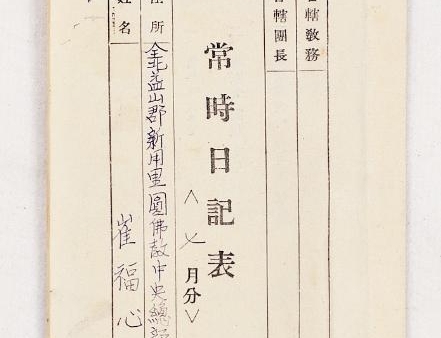 轄教務
轄團長
常時日記表
〈七月分〉
住所 全北益山郡新用里圓佛敎中央總部
姓名 崔福心